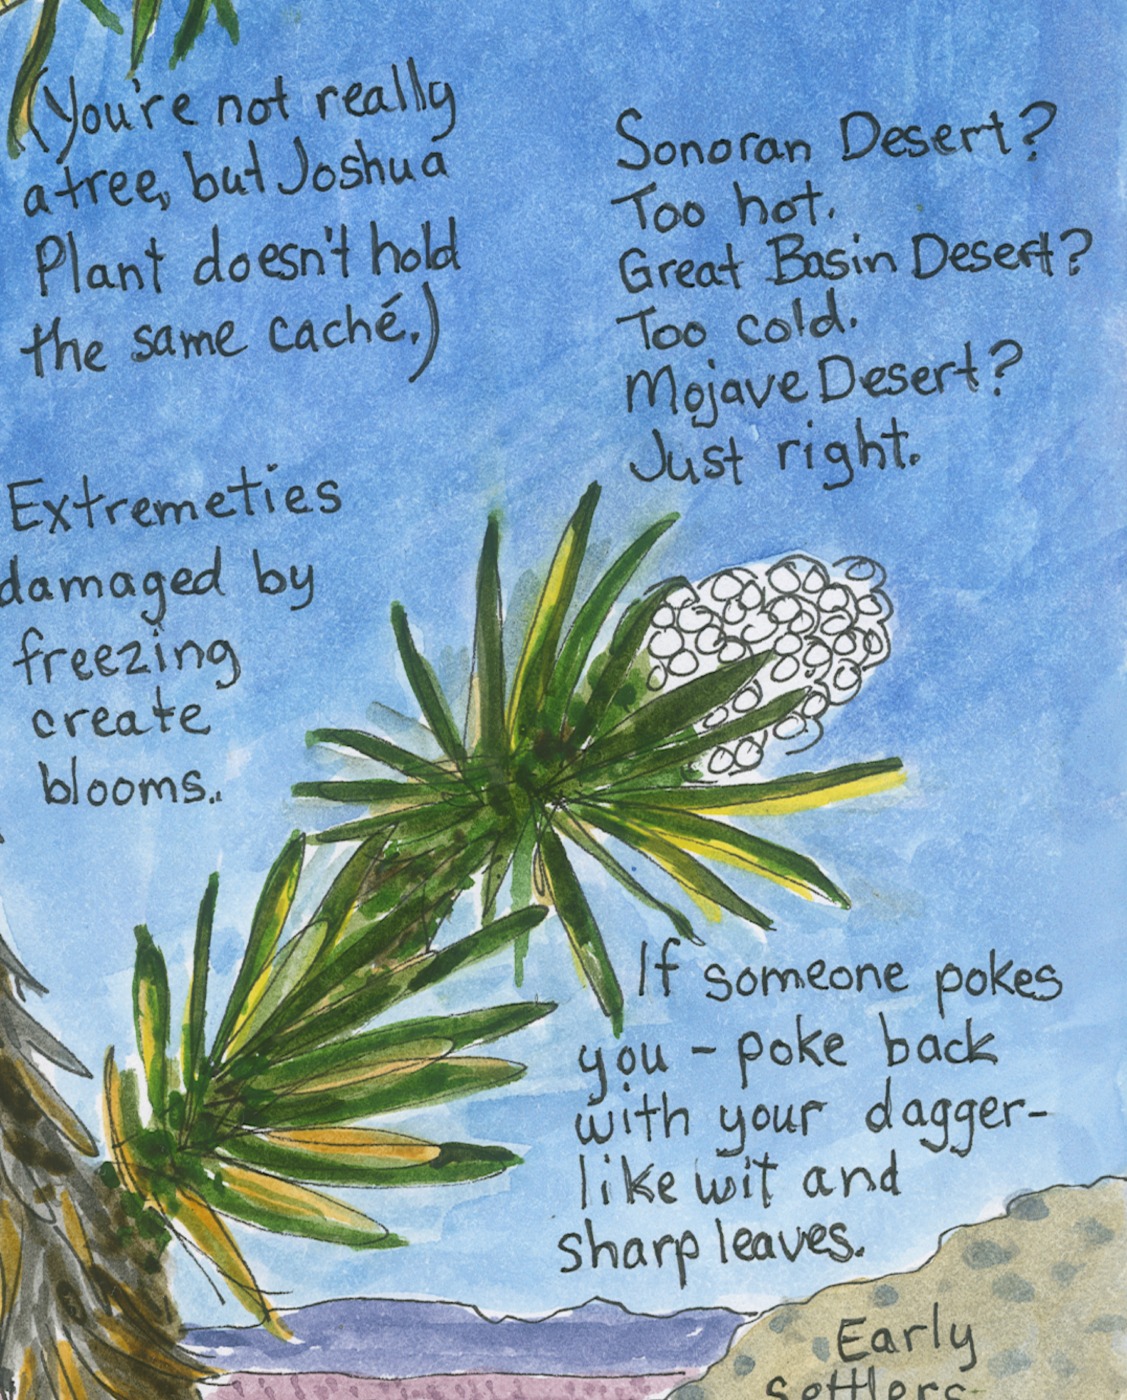 (You're not really
a tree, but Joshua
Plant doesn't hold
the same caché.)
Sonoran Desert?
Too hot.
Great Basin Desert?
Too cold.
Mojave Desert?
Just right.
Extremeties
damaged by
freezing
create
blooms.
If someone pokes
you - poke back
with your dagger-
like wit and
sharp leaves.
Early
settlers